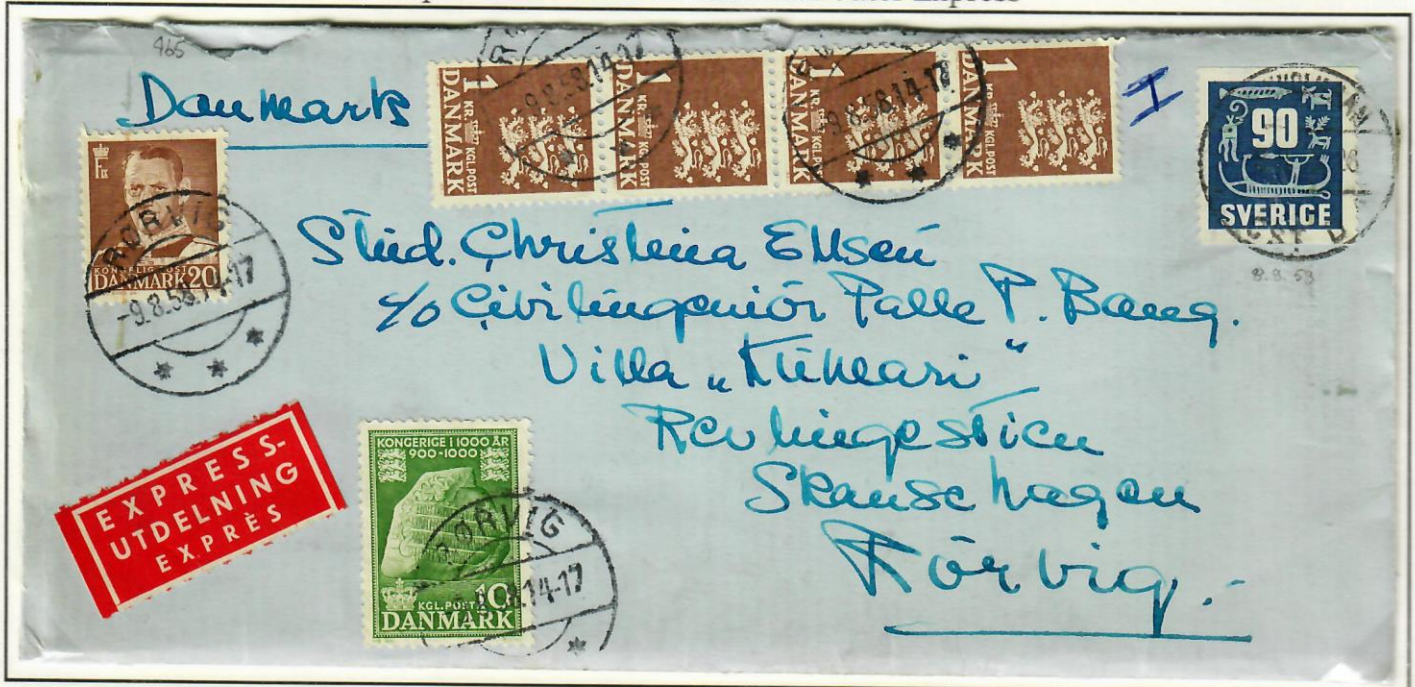 Express
465
Danmark
1 KR. KGL.POST DANMARK
1 KR. KGL.POST DANMARK
1 KR. KGL.POST DANMARK
1 KR. KGL.POST DANMARK
-9.8.58.14-17
-9.8.58.14-17
I
90
SVERIGE
8.8.58
KONGELIG POST
DANMARK 20
RØRVIG
-9.8.58.14-17
Stud. Christina Ellsén
c/o Civilingeniör Palle P. Bang.
Villa „
Revlingestien
Skansehagen
Rörvig.
EXPRESS-
UTDELNING
EXPRÈS
KONGERIGE I 1000 ÅR
900-1000
KGL.POST 10
DANMARK
RØRVIG
14-17